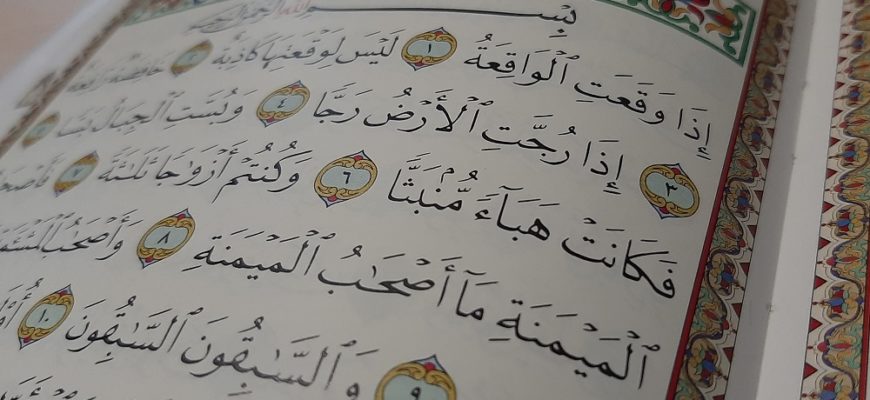 بِسْمِ ٱللَّهِ ٱلرَّحْمَٰنِ ٱلرَّحِيمِ
إِذَا وَقَعَتِ ٱلْوَاقِعَةُ ١ لَيْسَ لِوَقْعَتِهَا كَاذِبَةٌ ٢ خَافِضَةٌ رَّافِعَةٌ
٣ إِذَا رُجَّتِ ٱلْأَرْضُ رَجًّا ٤ وَبُسَّتِ ٱلْجِبَالُ بَسًّا ٥
فَكَانَتْ هَبَآءً مُّنۢبَثًّا ٦ وَكُنتُمْ أَزْوَٰجًا ثَلَٰثَةً ٧
ٱلْمَيْمَنَةِ مَآ أَصْحَٰبُ ٱلْمَيْمَنَةِ ٨ وَأَصْحَٰبُ
٩ وَٱلسَّٰبِقُونَ ٱلسَّٰبِقُونَ ١٠